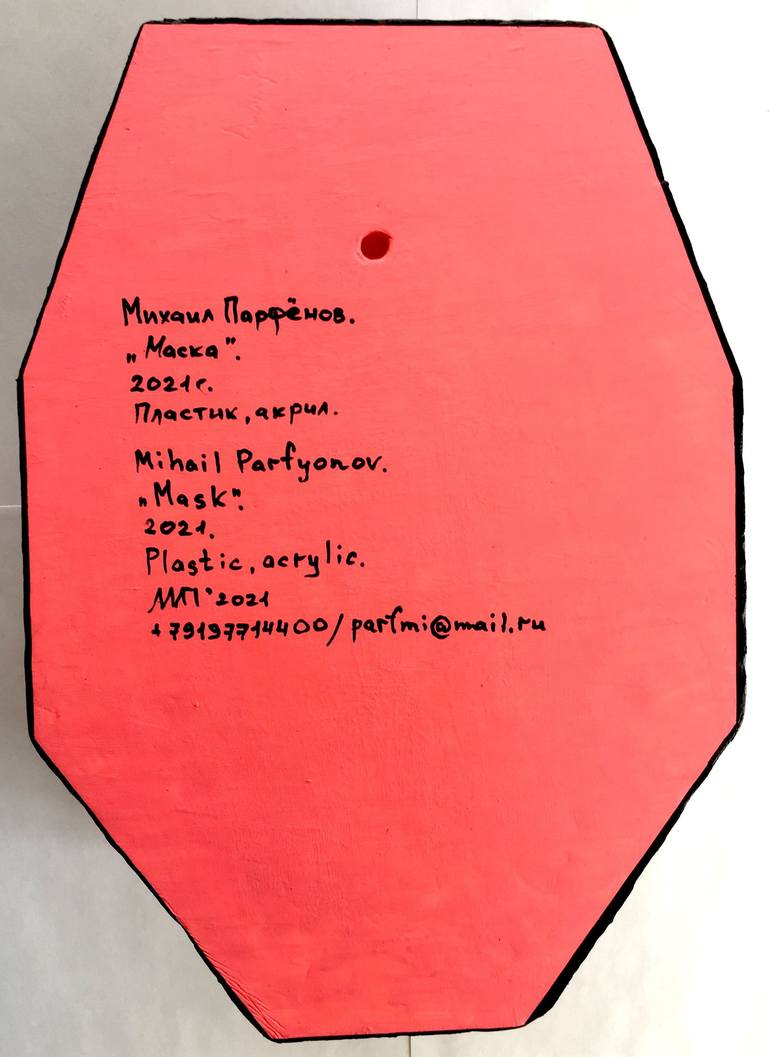 Михаил Парфёнов.
„Маска".
2021г.
Пластик, акрил.
Mihail Parfyonov.
„Mask".
2021.
Plastic, acrylic.
МП'2021
+79197714400/parfmi@mail.ru